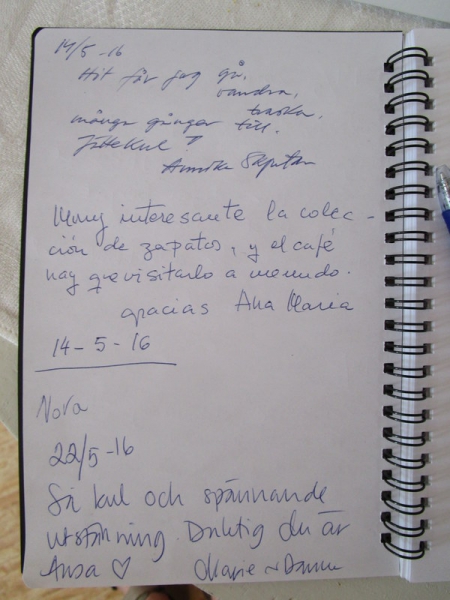 14/5 -16
Hit får jag gå,
vandra,
traska,
många gånger till.
Jättekul!
Annika
Muy interesante la colec-
ción de zapatos, y el café
hay que visitarlo a menudo.
gracias Ana Maria
14-5-16
Nova
22/5-16
Så kul och spännande
utställning. Duktig du är
Ansa ♡ Marie ~